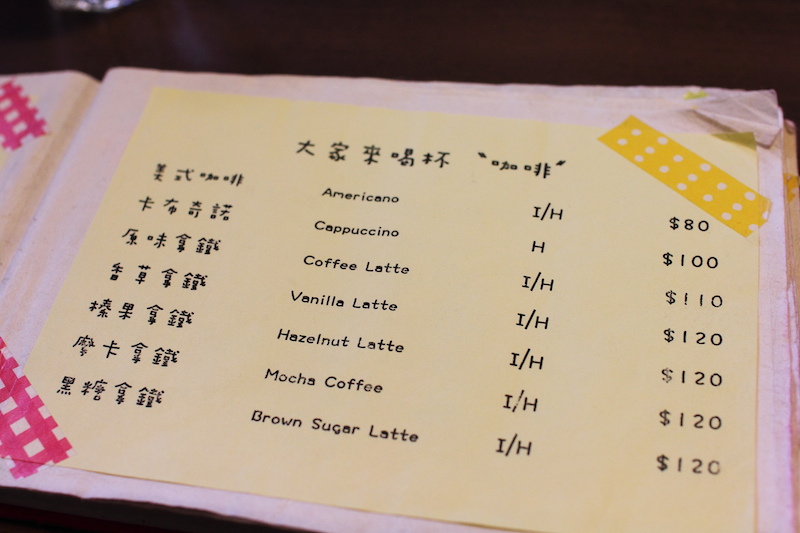 大家來喝杯 “咖啡”
美式咖啡 Americano I/H $80
卡布奇諾 Cappuccino H $100
原味拿鐵 Coffee Latte I/H $110
香草拿鐵 Vanilla Latte I/H $120
榛果拿鐵 Hazelnut Latte I/H $120
摩卡拿鐵 Mocha Coffee I/H $120
黑糖拿鐵 Brown Sugar Latte I/H $120